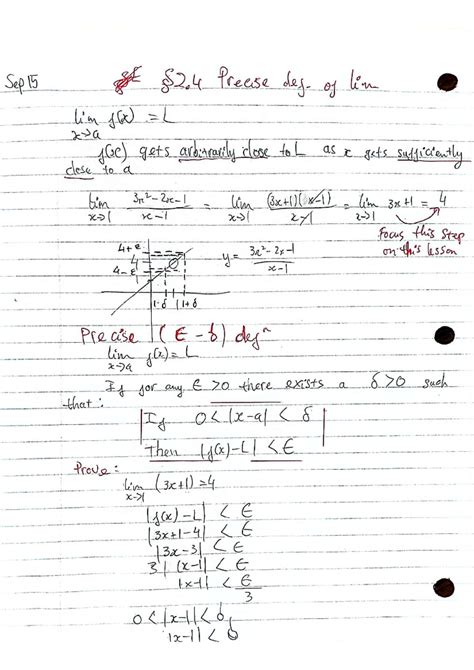 Sep 15
§2.4 Precise def. of lim
lim f(x) = L
x→a
f(x) gets arbitrarily close to L as x gets sufficiently
close to a
lim 3x²-2x-1 / x-1 = lim (3x+1)(x-1) / x-1 = lim 3x+1 = 4
x→1 x→1 x→1
Focus this step
on this lesson
4+ε
4
4-ε
y = 3x²-2x-1 / x-1
1-δ 1 1+δ
Precise (ε-δ) defⁿ
lim f(x) = L
x→a
If for any ε > 0 there exists a δ > 0 such
that:
If 0 < |x-a| < δ
Then |f(x)-L| < ε
Prove:
lim (3x+1) = 4
x→1
|f(x)-L| < ε
|3x+1-4| < ε
|3x-3| < ε
3|x-1| < ε
|x-1| < ε/3
0 < |x-1| < δ
|x-1| < δ